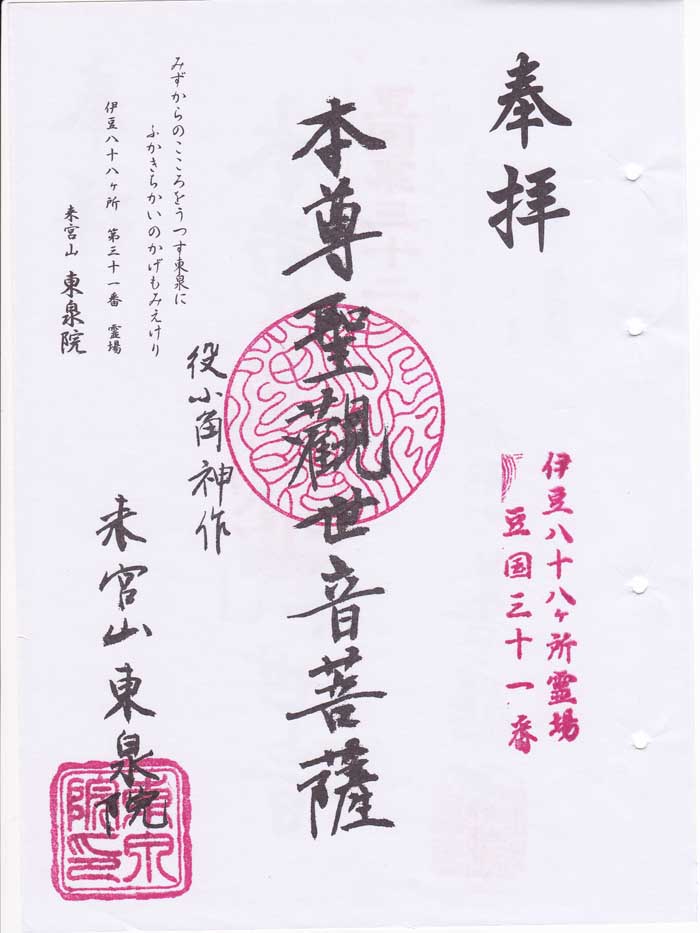 奉拝
伊豆八十八ヶ所霊場
豆国三十一番
本尊聖觀世音菩薩
役小角神作
みずからのこころをうつす東泉に
ふかきちかいのかげもみえけり
伊豆八十八ヶ所 第三十一番 霊場
来宮山 東泉院
来宮山東泉院